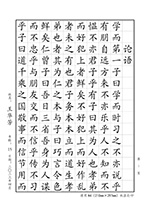 论语
学而第一子曰学而时习之不亦说乎
有朋自远方来不亦乐乎人不知而不
愠不亦君子乎有子曰其为人也孝弟
而好犯上者鲜矣不好犯上而好作乱
者未之有也君子务本本立而道生孝
弟也者其为仁之本与子曰巧言令色
鲜矣仁曾子曰吾日三省吾身为人谋
而不忠乎与朋友交而不信乎传不习
乎子曰道千乘之国敬事而信节用而